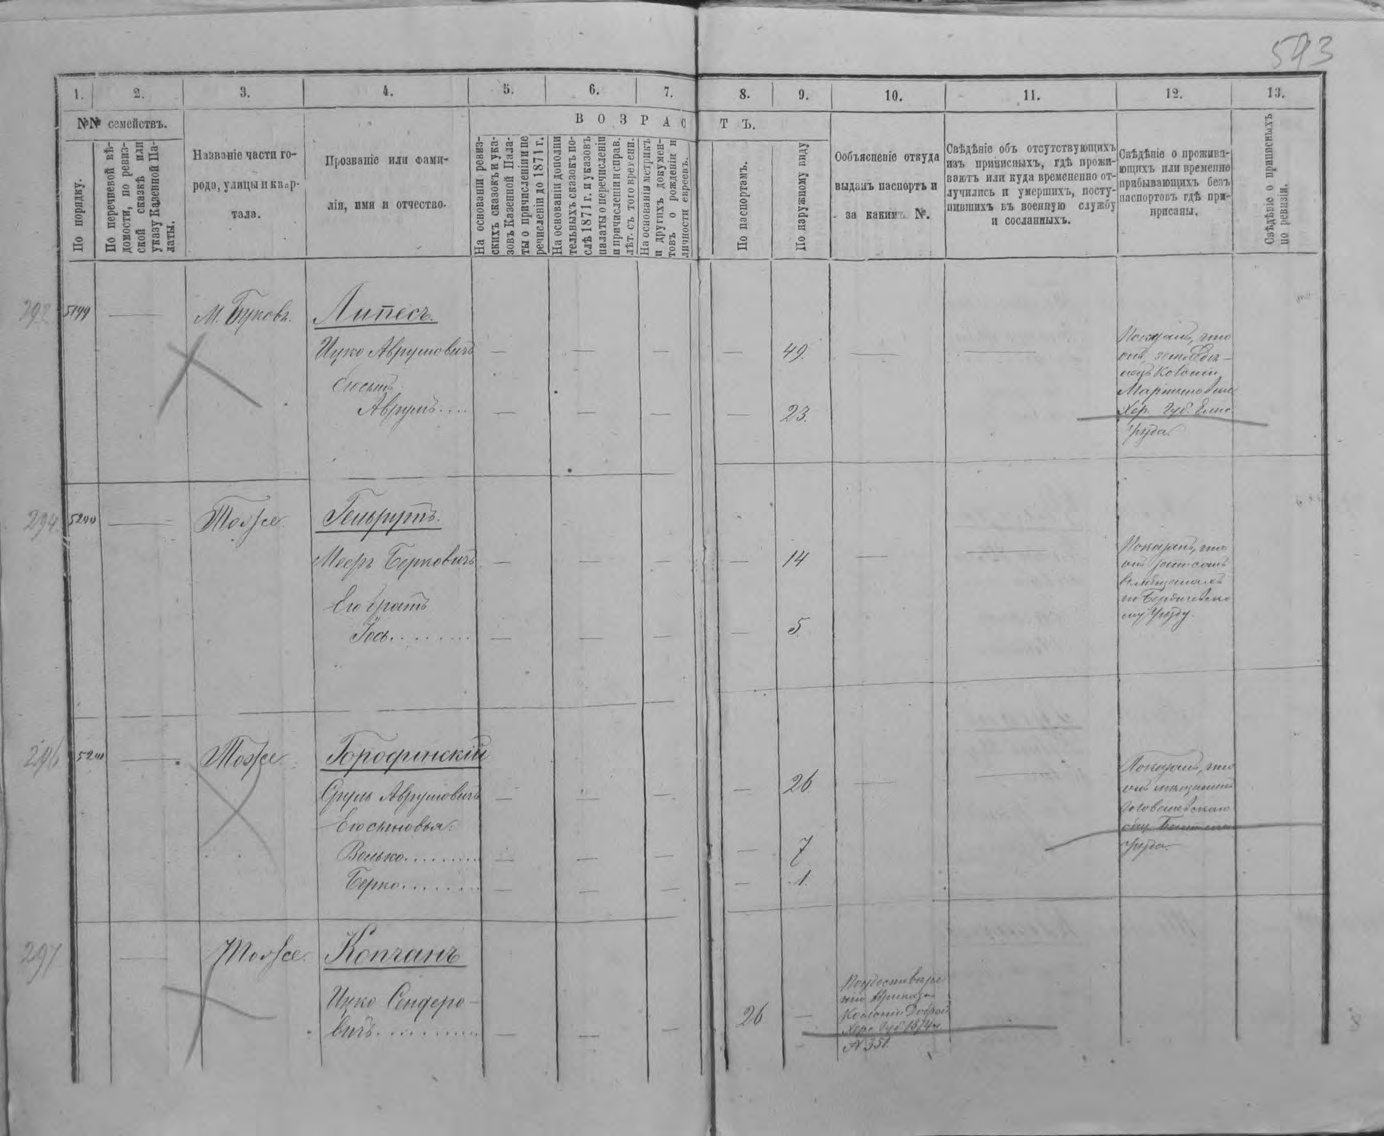 593
1. 2. 3. 4. 5. 6. 7. 8. 9. 10. 11. 12. 13.
№№ семействъ.
ВОЗРАСТЪ.
По порядку.
По перечневой вѣ-
домости, по ревиз-
ской сказкѣ или
указу Казенной Па-
латы.
Названіе части го-
рода, улицы и квар-
тала.
Прозваніе или фами-
лія, имя и отчество.
На основаніи ревиз-
скихъ сказокъ и ука-
зовъ Казенной Пала-
ты о причисленіи и пе
речисленіи до 1871 г.
На основаніи дополни
тельныхъ сказокъ по-
слѣ 1871 г. и указовъ
палаты о перечисленіи
и причисленіи и исправ.
лѣт. съ того времени.
На основаніи метрикъ
и другихъ докумен-
товъ о рожденіи и
личности евреевъ.
По паспортамъ.
По наружному виду
Объясненіе откуда
выданъ паспортъ и
за какимъ №.
Свѣдѣніе объ отсутствующихъ
изъ приписныхъ, гдѣ прожи-
ваютъ или куда временно от-
лучились и умершихъ, посту-
пившихъ въ военную службу
и сосланныхъ.
Свѣдѣніе о прожива-
ющихъ или временно
прибывающихъ безъ
паспортовъ гдѣ при-
писаны.
Свѣдѣніе о приписныхъ
по ревизіи.
292 5199 М. Буковъ. Липесъ.
Ицко Аврумовичъ 49.
Сынъ
Аврумъ.... 23.
Показалъ, что
онъ земледѣ-
лецъ Колоніи
Хер. Губ. Елис
уѣзда.
294 5200 Тоже Гельрутъ.
Мееръ Берковичъ 14
Его братъ
Іось........ 5.
Показалъ, что
онъ записанъ
по Бердичевско
му уѣзду.
296 5201 Тоже Городинскій
Сруль Аврумовичъ 26
Его сыновья:
Волько......... 7
Берко........ 1.
Показалъ, что
онъ мѣщанинъ
уѣзда.
297 Тоже. Копчанъ
Ицко Сендеро-
вичъ........... 26
Колоніи Доброй
Херс. Губ. 1874 г.
№ 351.